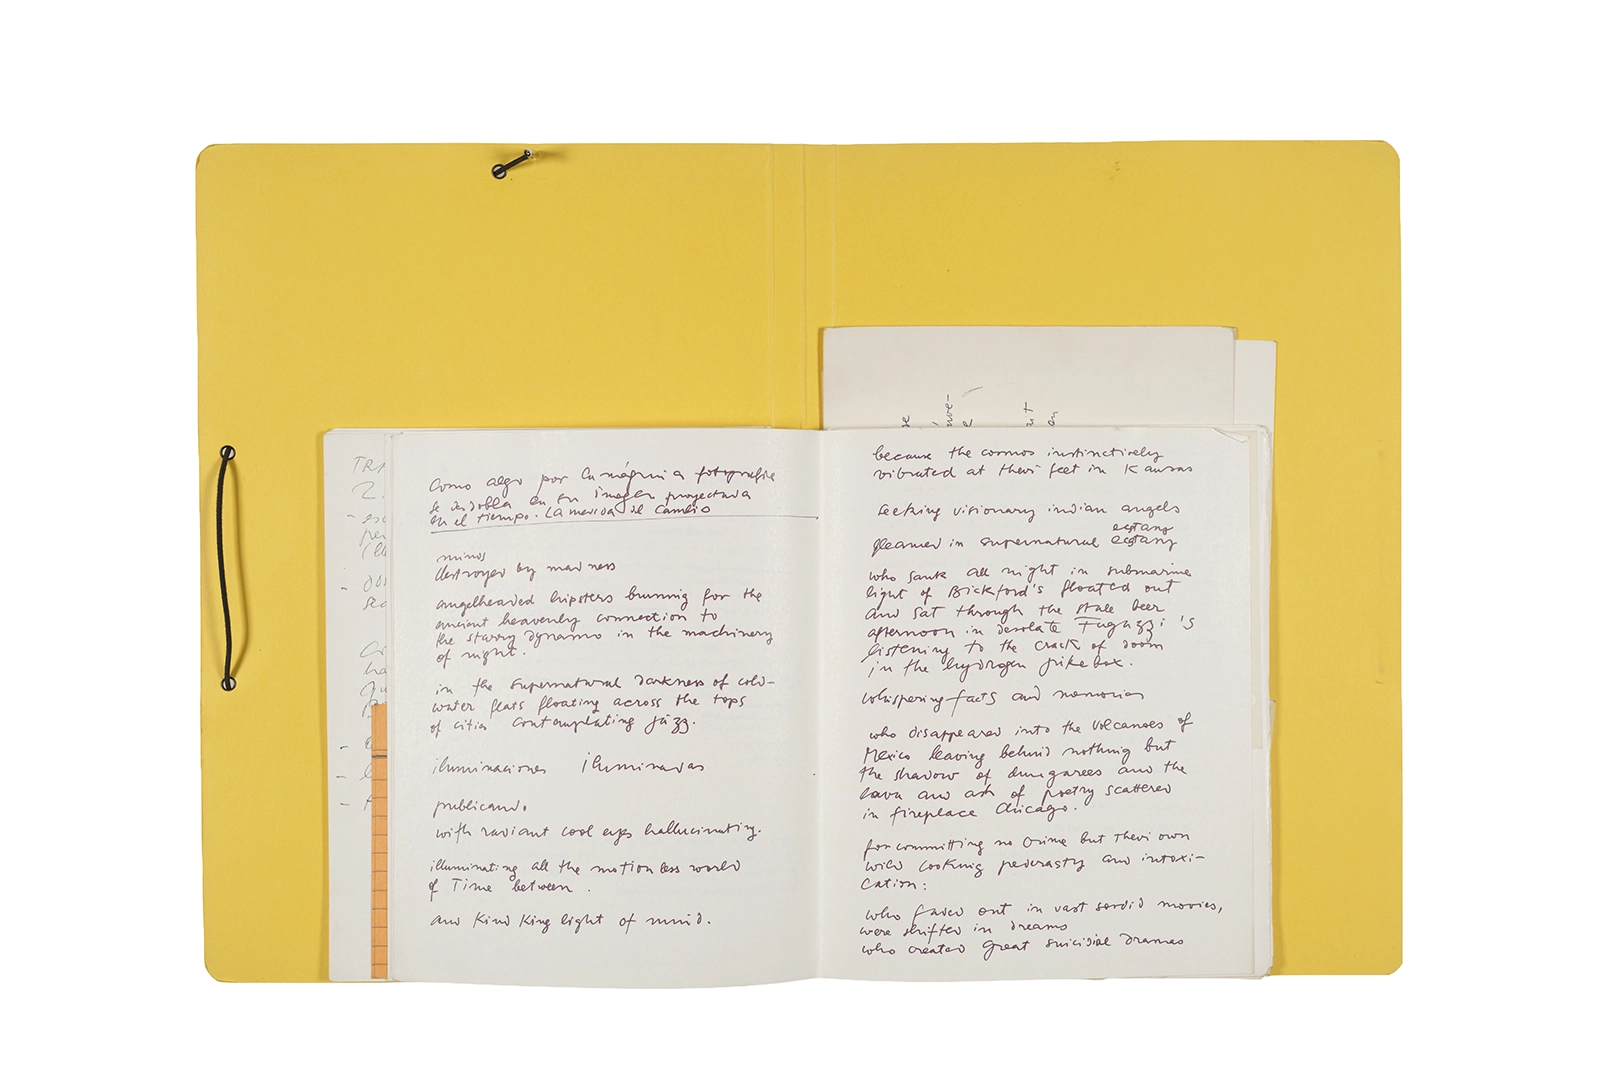 como algo por la máquina fotografía
se desdobla en su imagen proyectada
en el tiempo. La medida del cambio
minds
destroyed by madness
angelheaded hipsters burning for the
ancient heavenly connection to
the starry dynamo in the machinery
of night.
in the supernatural darkness of cold-
water flats floating across the tops
of cities contemplating jazz.
iluminaciones iluminadas
publicando.
with radiant cool eyes hallucinating.
illuminating all the motionless world
of Time between.
and Kind King light of mind.
se
úve-
e
ut
en
because the cosmos instinctively
vibrated at their feet in Kansas
seeking visionary indian angels
ecstasy
gleamed in supernatural ecstasy
who sank all night in submarine
light of Bickford's floated out
and sat through the stale beer
afternoon in desolate Fugazzi's
listening to the crack of doom
in the hydrogen jukebox.
whispering facts and memories
who disappeared into the volcanoes of
Mexico leaving behind nothing but
the shadow of dungarees and the
lava and ash of poetry scattered
in fireplace Chicago.
for committing no crime but their own
wild cooking pederasty and intoxi-
cation:
who faded out in vast sordid movies,
were shifted in dreams
who created great suicidal dramas